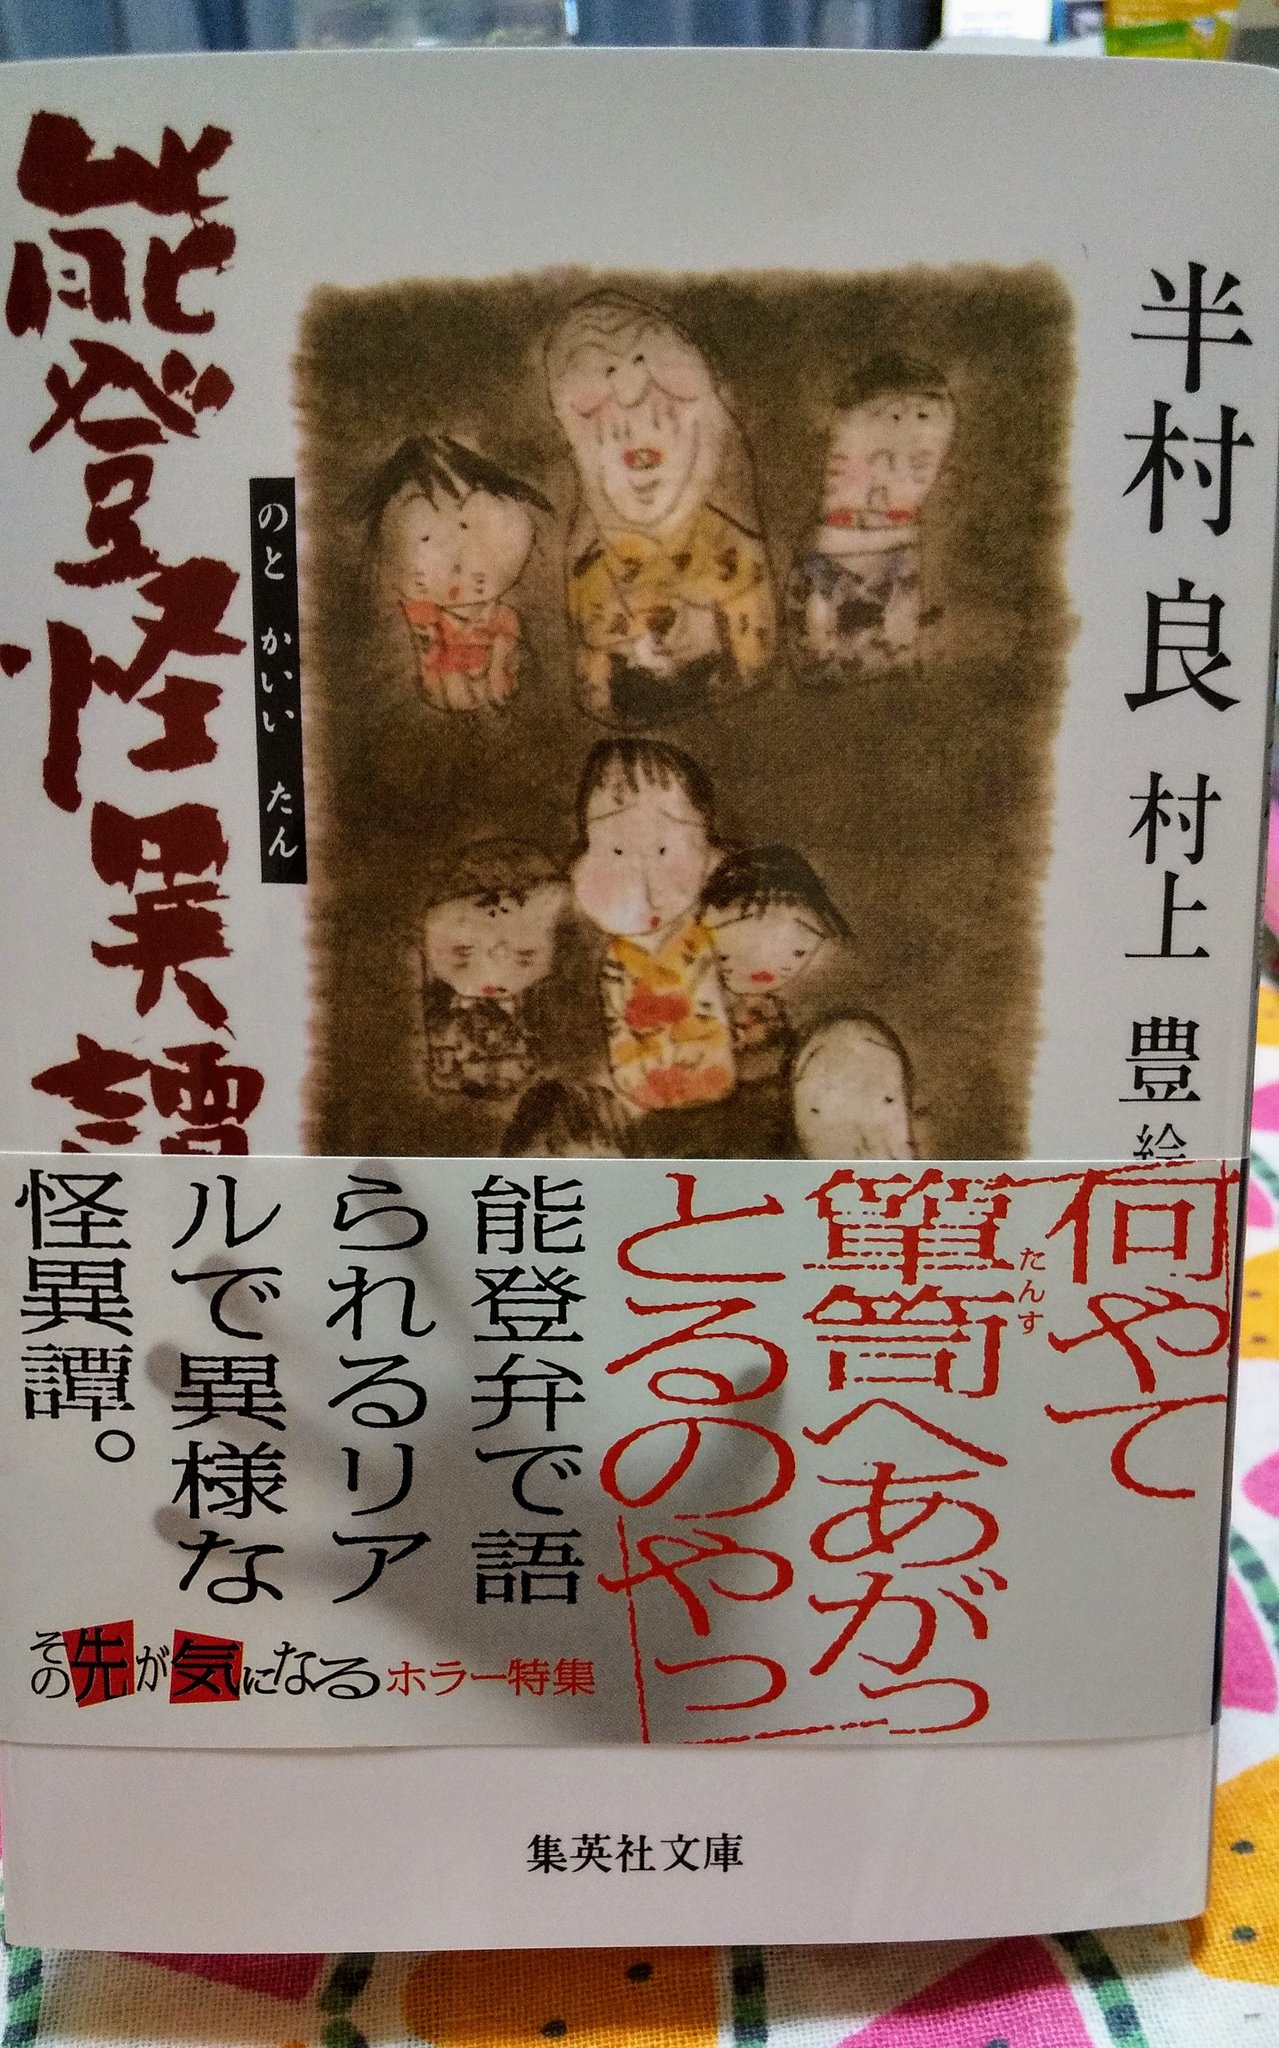 半村良
村上豊 絵
能登怪異譚
のとかいいたん
何やて
箪笥へあがっ
たんす
とるのやっ
能登弁で語
られるリア
ルで異様な
怪異譚。
その先が気になるホラー特集
集英社文庫